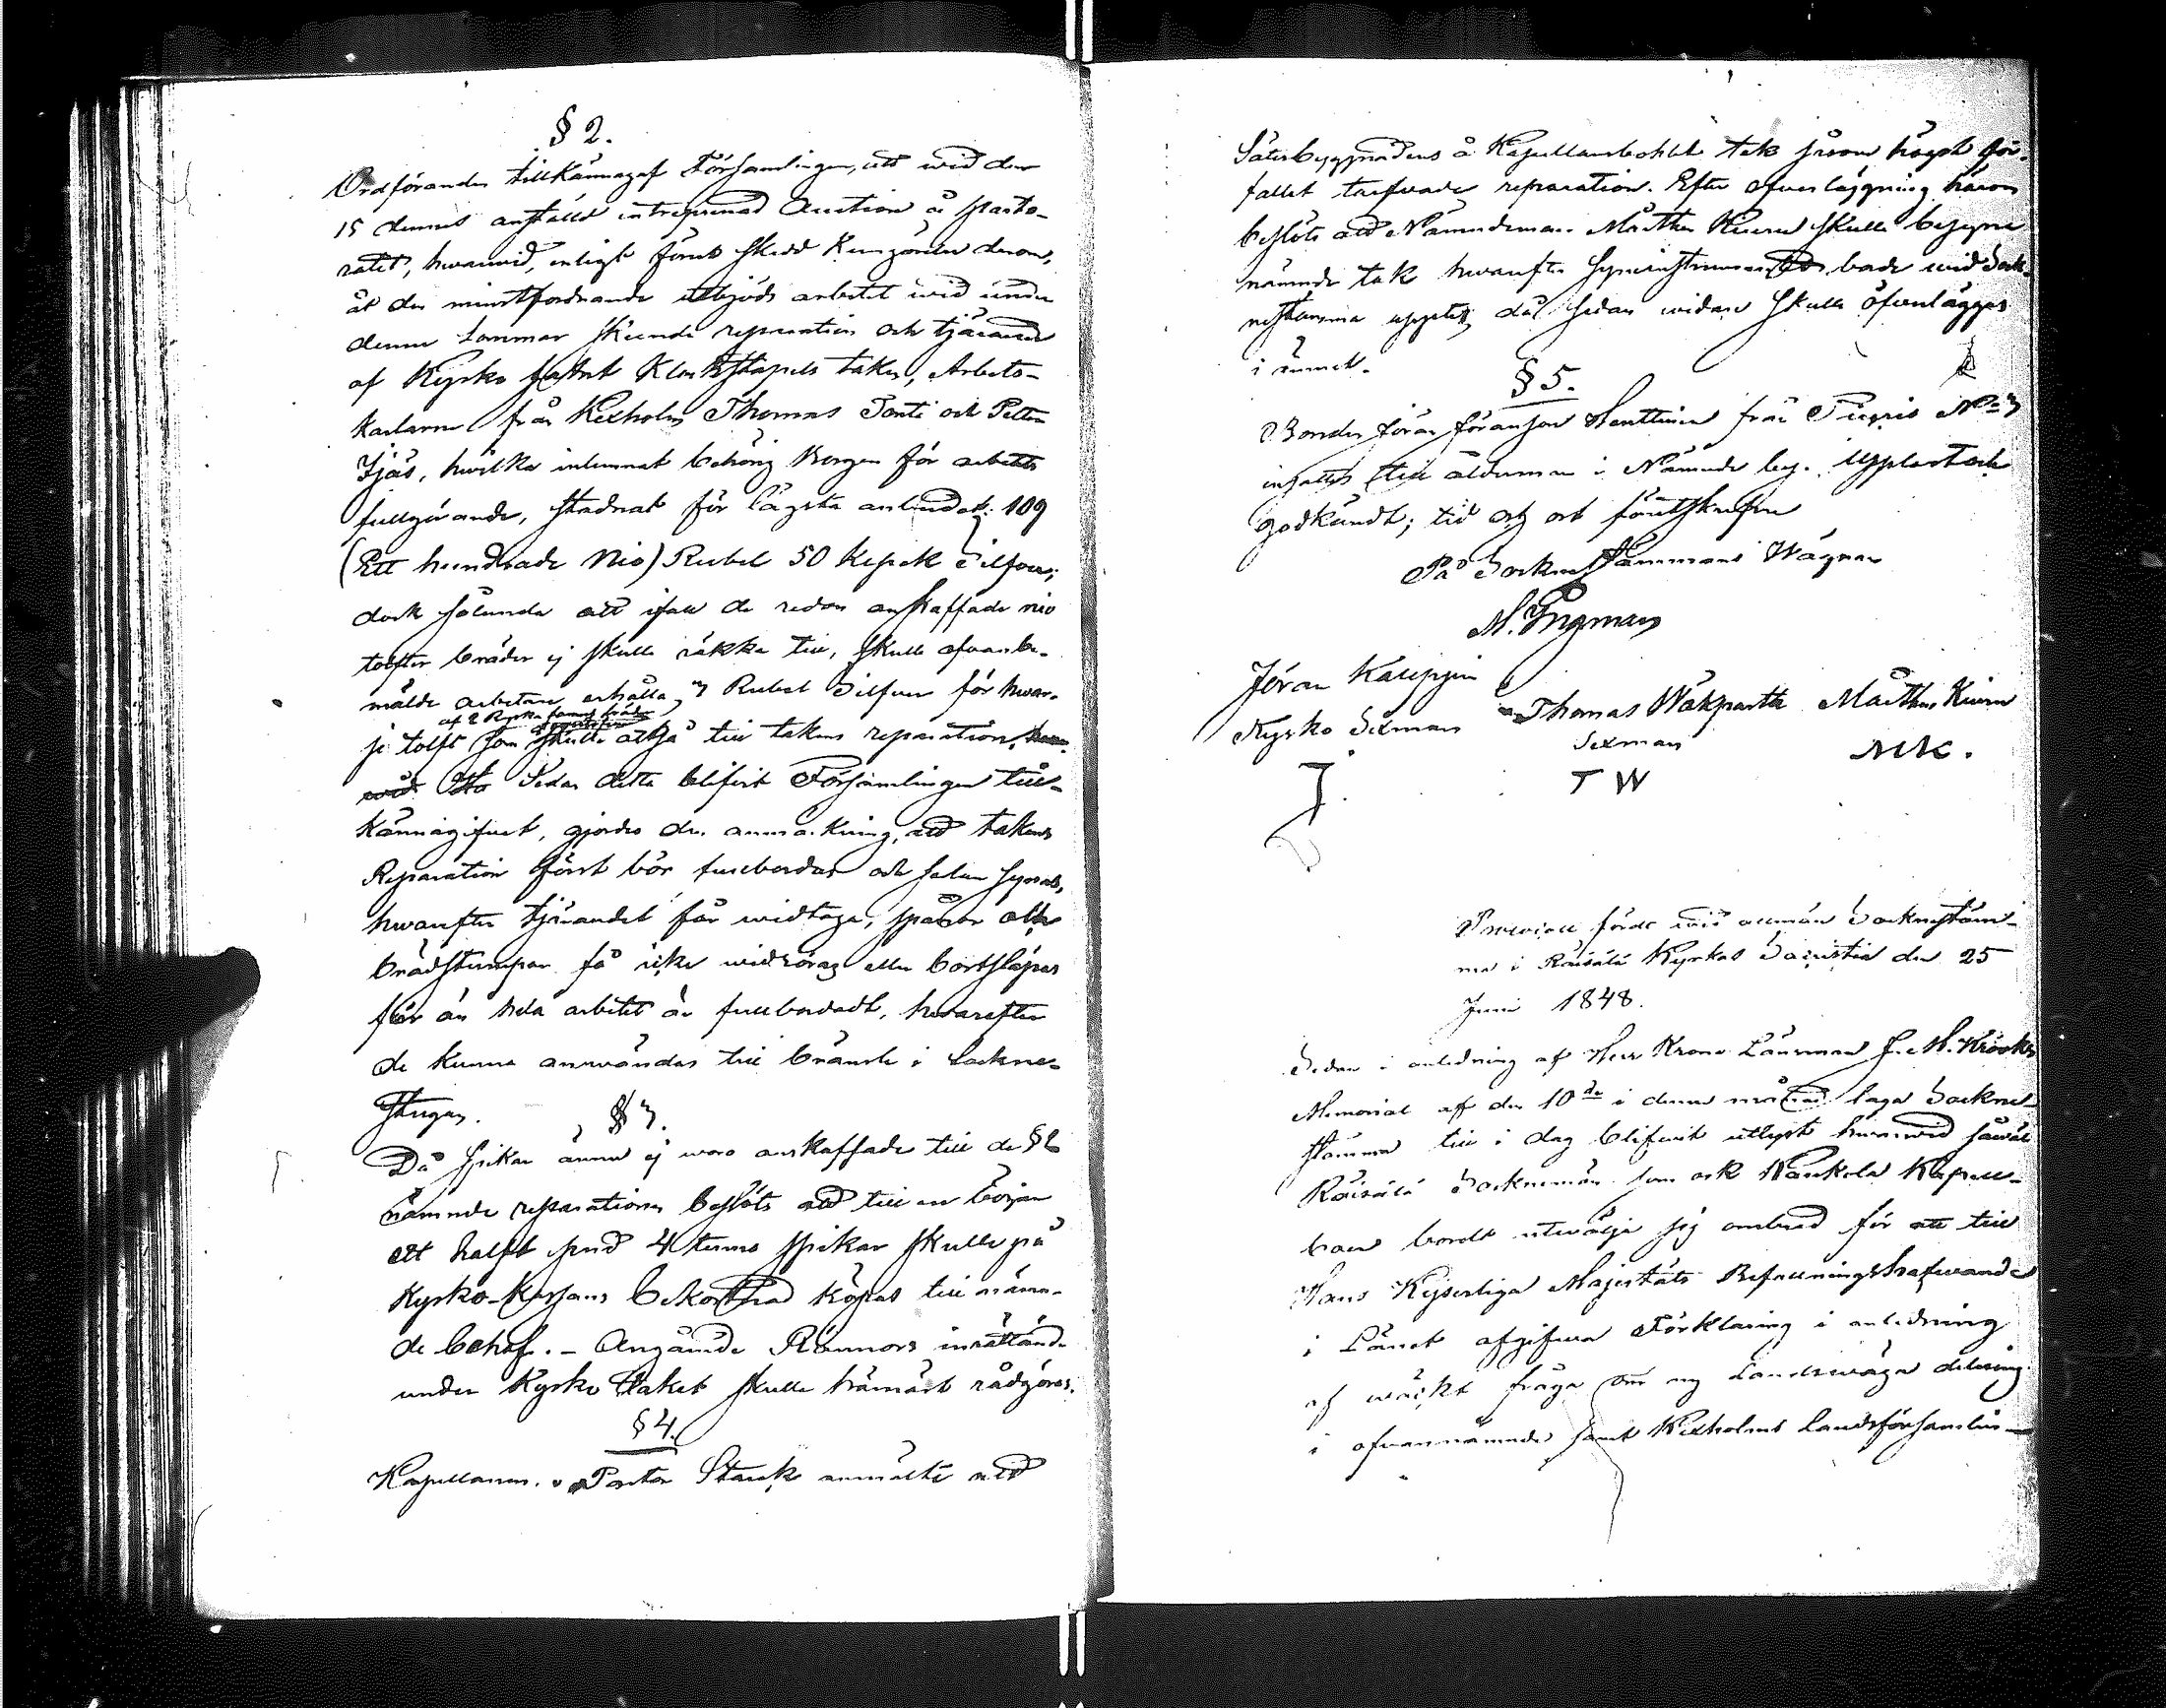 § 2.
Ordföranden tillkännagaf Församlingen, att wid den
15 dennes anstäld entreprenad Auction å pasto-
ratet, hwarwid, enligt förut skedd kungörelse derom,
åt den minstfordrande utbjöds arbetet wid under
denne sommar skeende reparation och tjärande
af Kyrko samt Klockstapels taken, Arbets-
karlarne från Kexholm Thomas Ponti och Petter
Ijäs, hwilka inlemnat behörig borgen för arbetets
fullgörande, stadnat för lägsta anbudet: 109
(Ett hundrade Nio) Rubel 50 Kopek Silfwer;
dock sålunda att ifall de redan anskaffade nio
tolfter bräder ej skulle räkka till, skulle ofvanbe-
mälde arbetare erhålla 3 Rubel Silfwer för hwar-
af 2 Ryska famnars bräder
je tolft som skulle åtgå till takens reparation,
wid Sedan detta blifvit Församlingen till-
kännagifwet, gjordes den anmärkning, att takens
Reparation först bör fullbordas och sedan synas,
hwarefter tjärandet får widtaga, spånor och
brädstumpar få icke widröras eller bortsläpas
förr än hela arbetet är fullbordadt, hwarefter
de kunna användas till bränsle i Sockne-
stugan.
§ 3.
Då spikar ännu ej woro anskaffade till de § 2
nämnde reparationer beslöts att till en början
ett halft pud 4 tums spikar skulle på
Kyrko-Kassans bekostnad köpas till nämn-
de behof. - Angående Rännors inrättande
under Kyrko taket skulle framdeles rådgöras.
§ 4.
Kapellanen v. Pastor Starck anmälte att
Säteribyggnadens å Kapellansbohlet tak såsom högst för-
fallet tarfvade reparation. Efter öfverläggning härom
beslöts att Nämndeman Mårthen Kiuru skulle besigna
nämnde tak hwarefter syneinstrumentet borde wid Sock-
nestämma uppläsas, då sedan widare skulle öfverläggas
i ämnet.
§ 5.
Bonden Jöran Jöransson Henttinen från Tiuris N:o 3
insattes till ålderman i Nämnde by. Uppläst och
godkändt; tid och ort förutskrefne
På Sockne Stämmans Wägnar
M. Ingman
Jöran Kauppin Thomas Wäkiparta Mårthen Kiuru
Kyrko Sexman Sexman MK.
J. T W
Protocoll fördt wid allmän Sockneståm-
ma i Räisälä Kyrkas Sacristia den 25
Juni 1848.
Sedan i anledning af Herr Krono Länsman J. M. Kröckells
Memorial af den 10de i denne månad laga Sockne
stämma till i dag blifwit utlyst hwarwid såwäl
Räisälä Sockneman som ock Kaukola Kapell-
boer bordt utwälja sig ombud för att till
Hans Kejserliga Majestäts Befallningshafwande
i Länet afgifwa Förklaring i anledning
af wäckt fråga om ny Landswäga delning
i ofwannämnde samt Kexholms landsförsamlin-